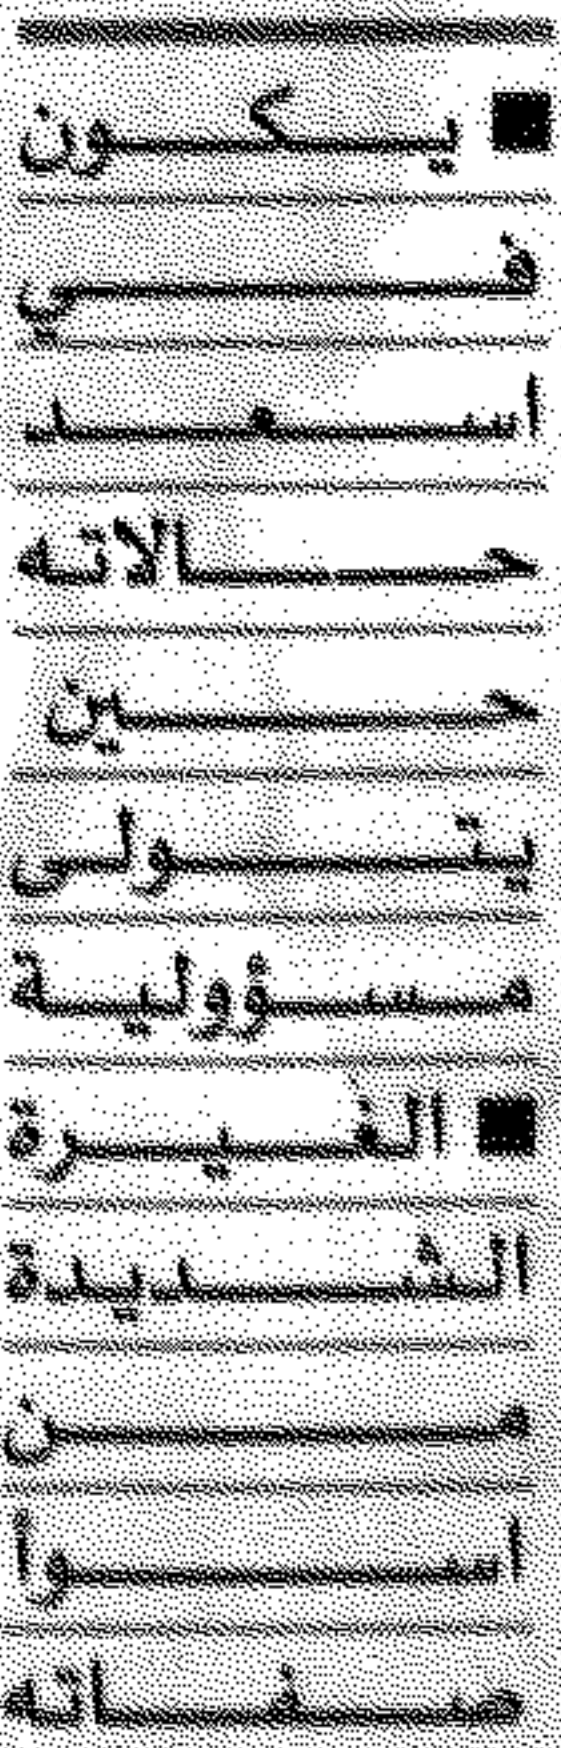 ■ يكون
في
اسعد
حالاته
حين
يتولى
مسؤولية
■ الغيرة
الشديدة
من
اسوأ
صفاته